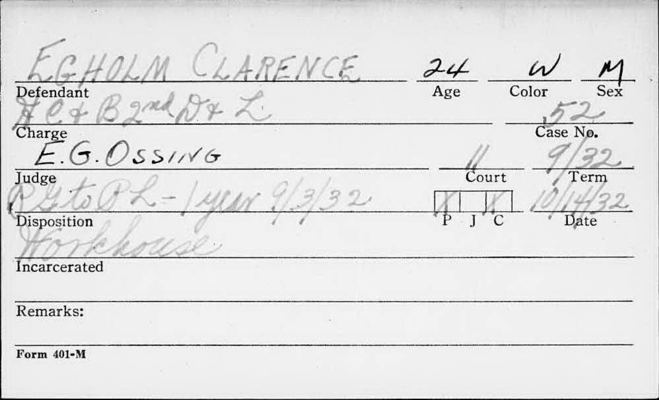 EGHOLM CLARENCE 24 W M
Defendant Age Color Sex
H C & B 2nd D & L 52
Charge Case No.
E.G. OSSING 11 9/32
Judge Court Term
P G to P L - 1 year 9/3/32 X X 10/14/32
Disposition P J C Date
Workhouse
Incarcerated
Remarks:
Form 401-M